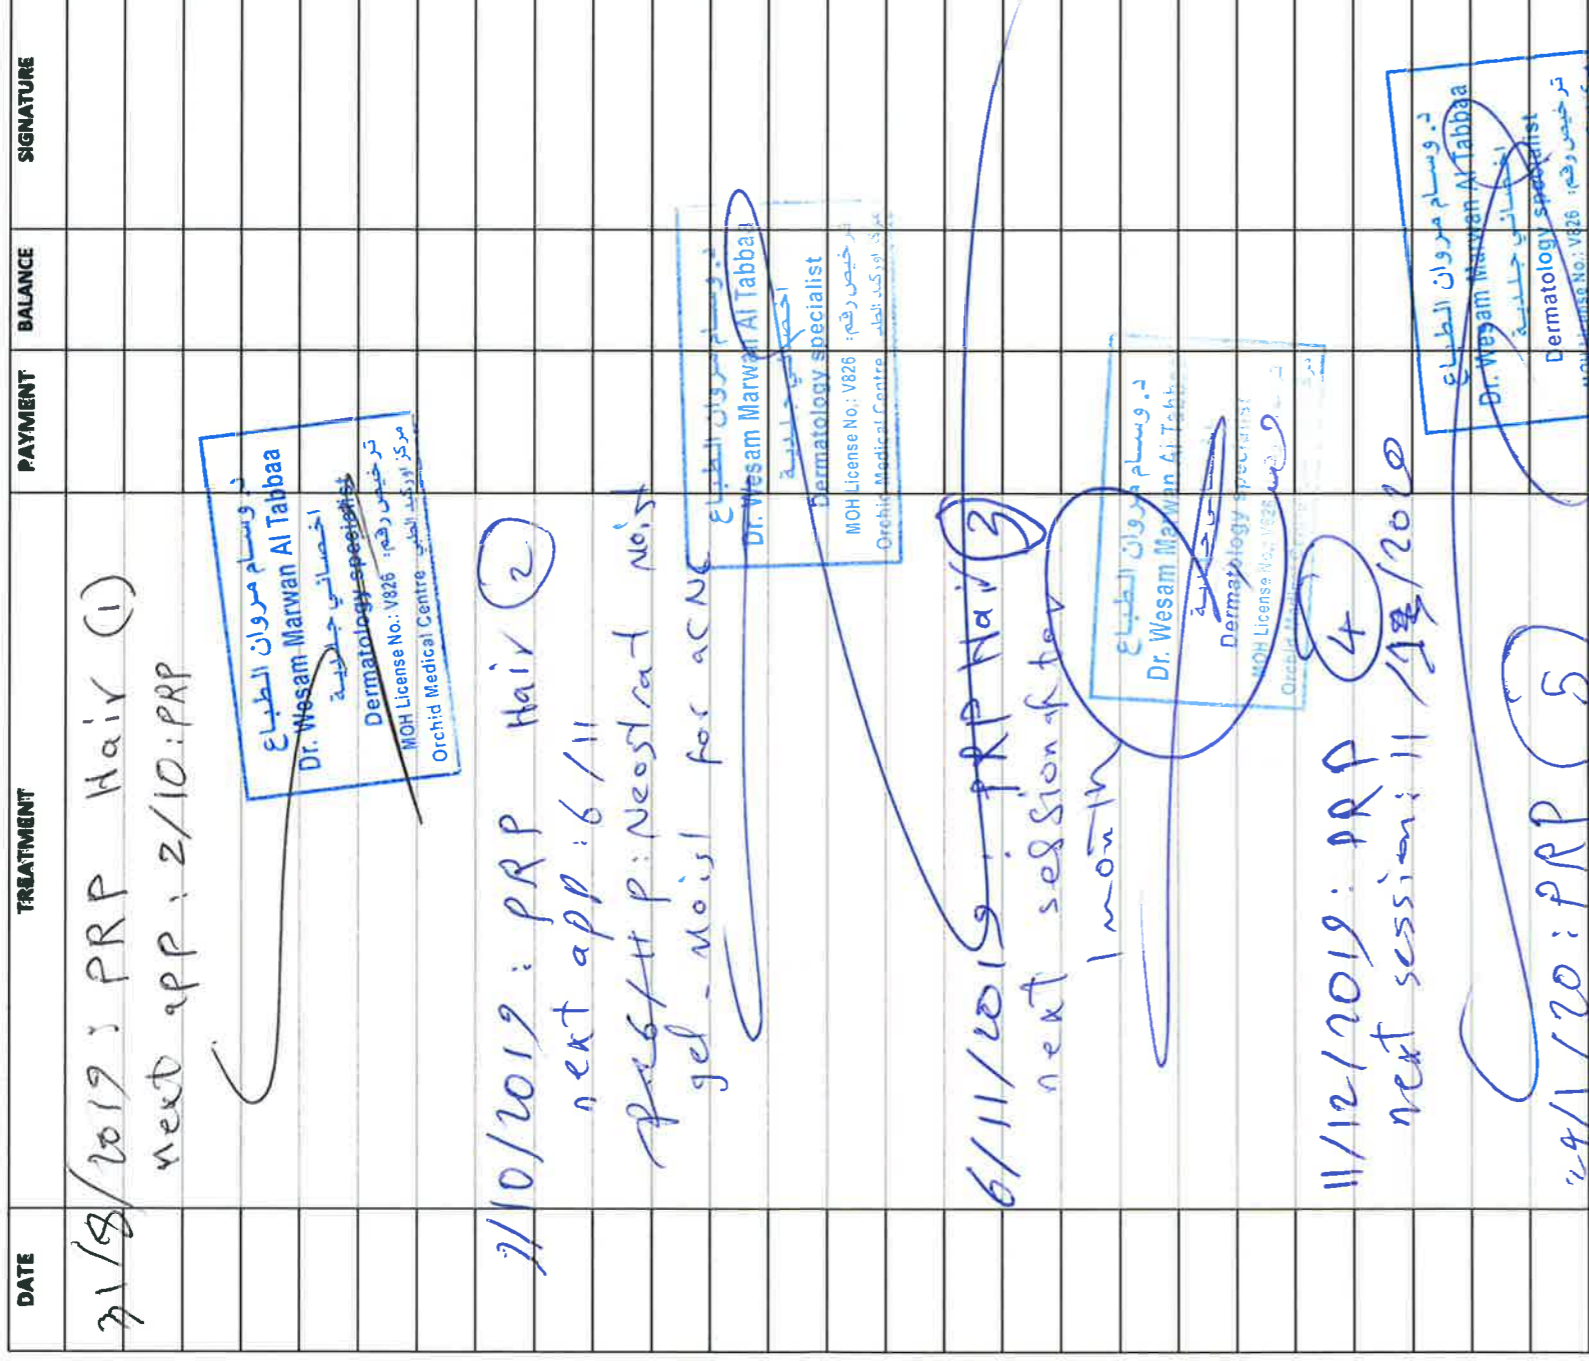 DATE TREATMENT PAYMENT BALANCE SIGNATURE
31/8/2019: PRP Hair (1)
next app: 2/10: PRP
د. وسام مروان الطباع
Dr. Wesam Marwan Al Tabbaa
اخصائي جلدية
Dermatology specialist
ترخيص رقم:
MOH License No.: V826
مركز اوركيد الطبي
Orchid Medical Centre
/10/2019: PRP Hair 2
next app: 6/11
P: Neostrat Moist
gel - Moist for acNe
د. وسام مروان الطباع
Dr. Wesam Marwan Al Tabbaa
اخصائي جلدية
Dermatology specialist
MOH License No.: V826 ترخيص رقم:
Orchid Medical Centre مركز اوركيد الطبي
6/11/2019: PRP Hair 3
next session after
1 month
د. وسام مروان الطباع
Dr. Wesam Marwan Al Tabbaa
اخصائي جلدية
Dermatology specialist
MOH License No.: V826
11/12/2019: PRP 4
next session: 11/ /2020
د. وسام مروان الطباع
Dr. Wesam Marwan Al Tabbaa
اخصائي جلدية
Dermatology specialist
MOH License No.: V826 ترخيص رقم:
24/1/20: PRP 5